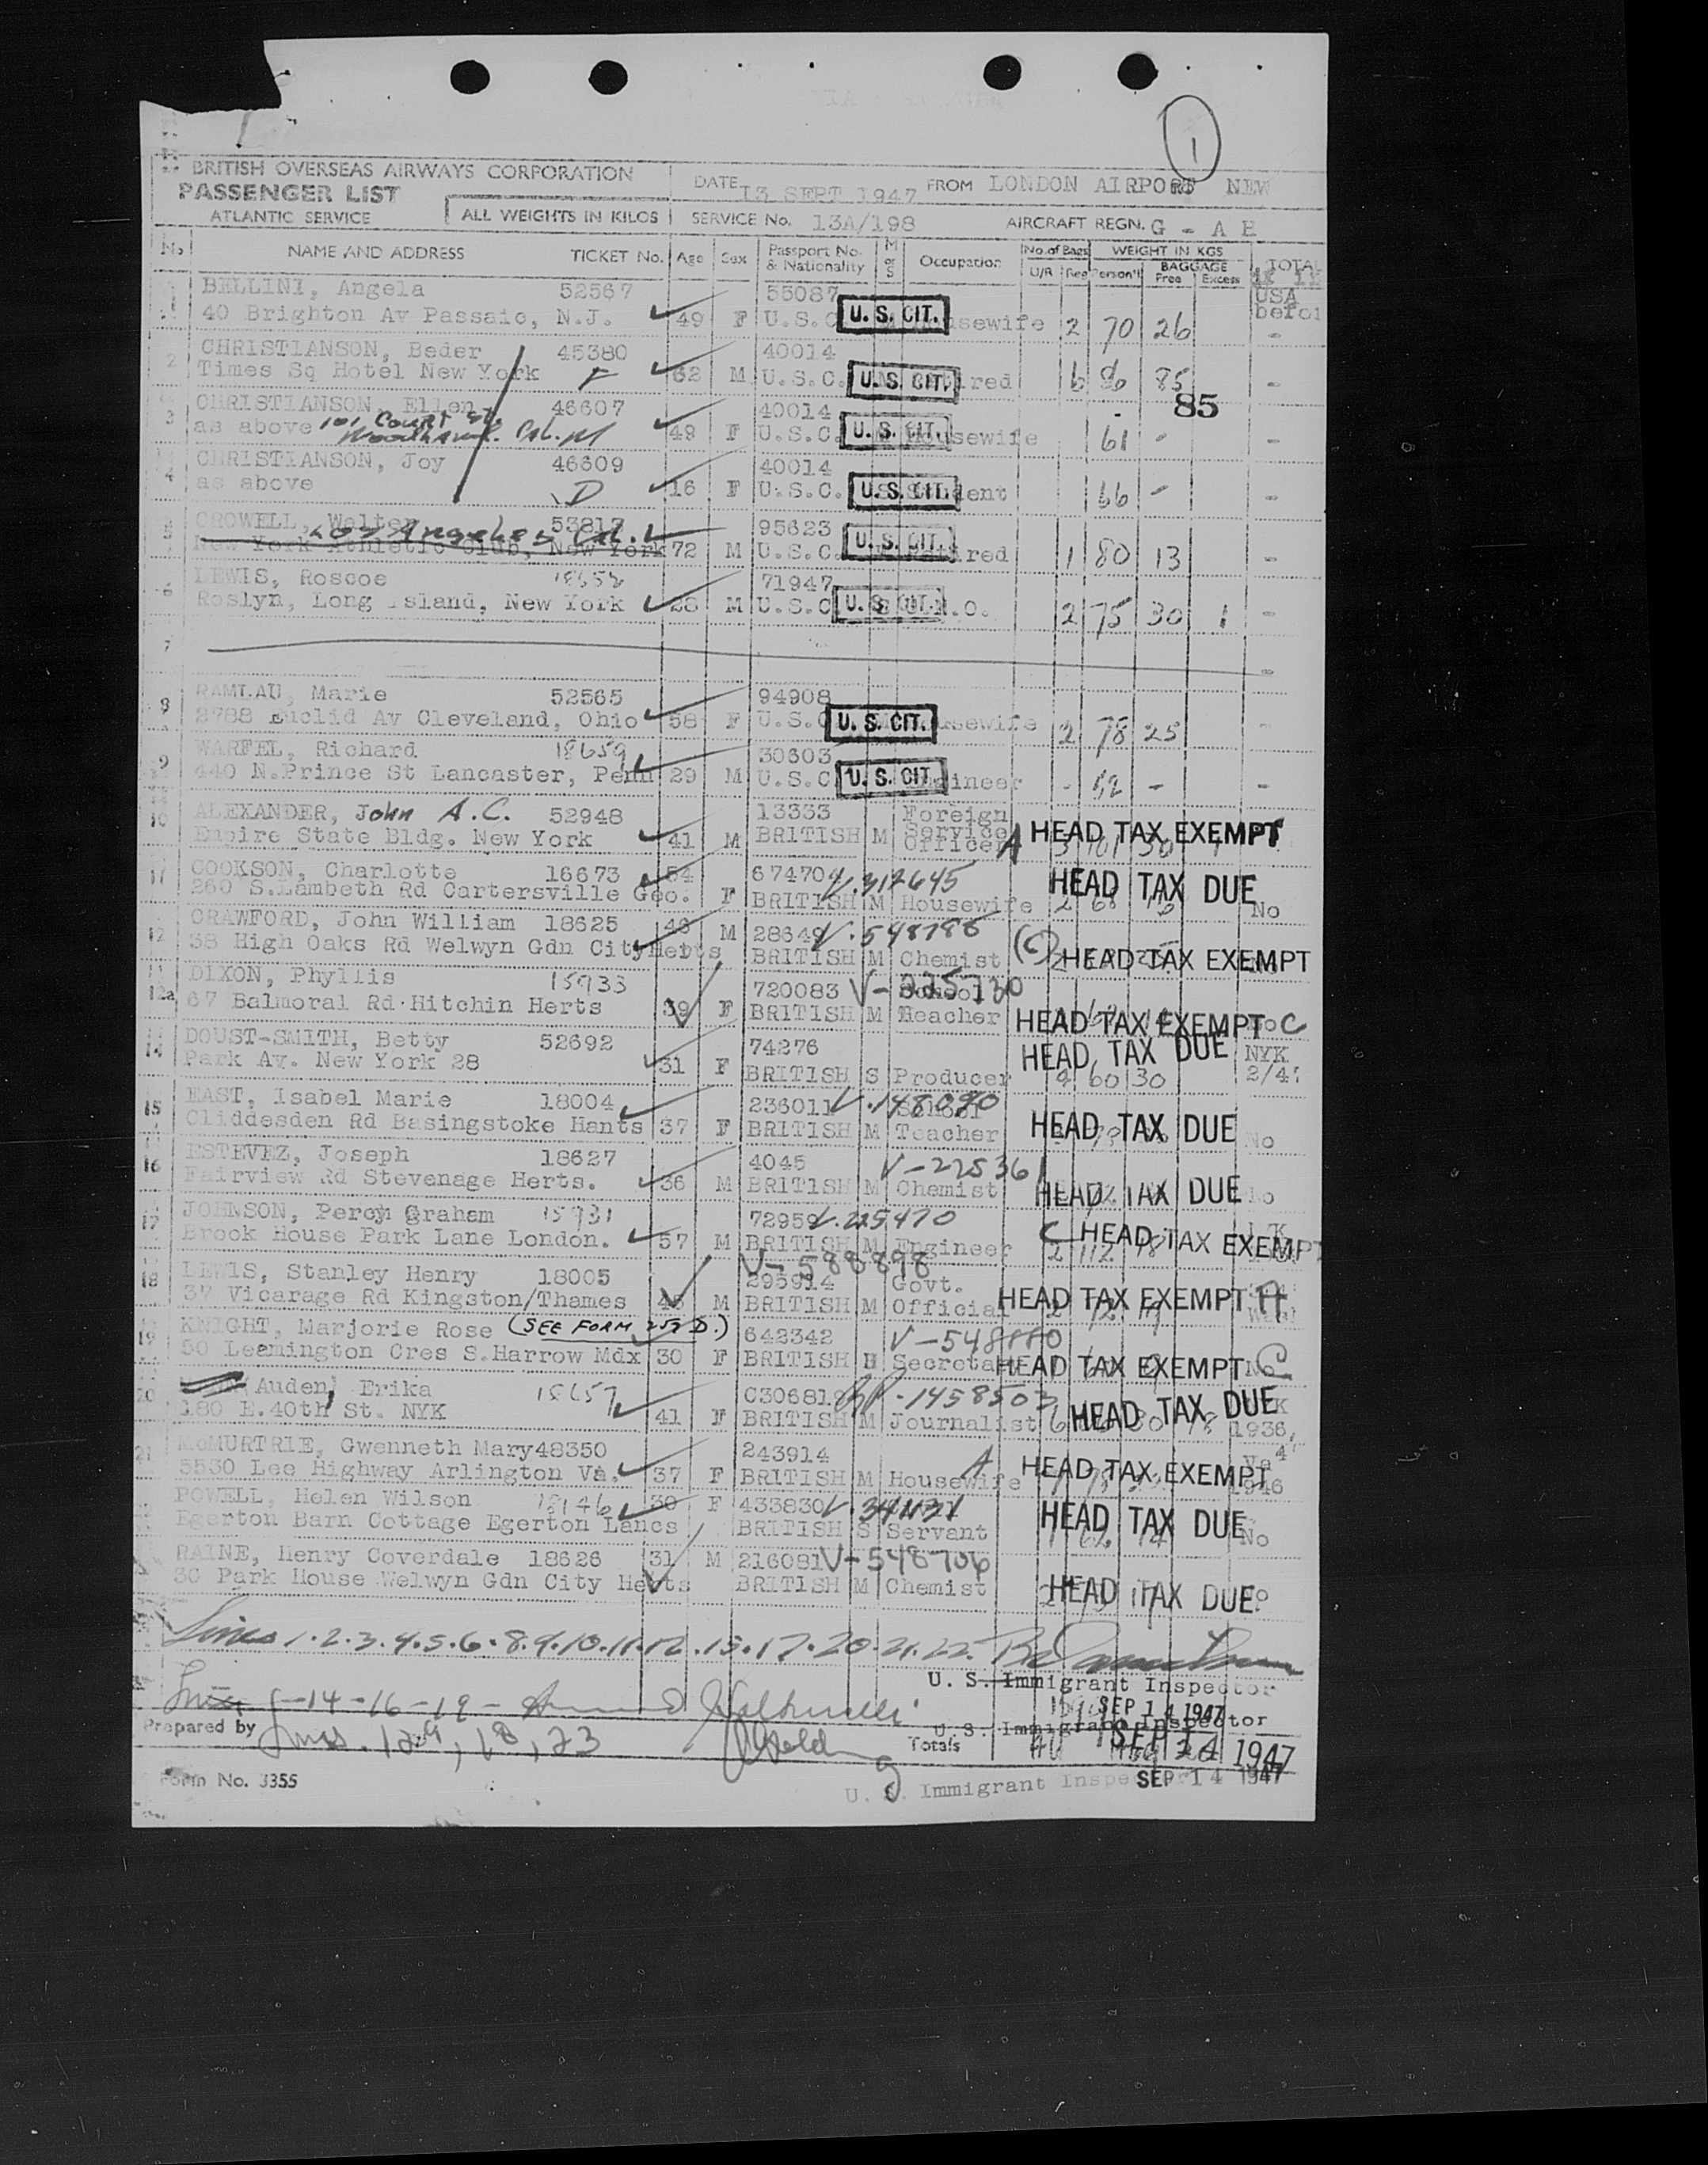 1
BRITISH OVERSEAS AIRWAYS CORPORATION
PASSENGER LIST
ATLANTIC SERVICE
ALL WEIGHTS IN KILOS
DATE 13 SEPT 1947 FROM LONDON AIRPORT NEW
SERVICE No. 13A/198 AIRCRAFT REGN. G - A H
No NAME AND ADDRESS TICKET No. Age Sex Passport No. & Nationality M or S Occupation No. of Bags U/R Reg WEIGHT IN KGS Person'l BAGGAGE Free Excess TOTAL
USA
BELLINI, Angela 52567 55087
1 40 Brighton Av Passaic, N.J. 49 F U.S.C. U. S. CIT. 2 70 26 -
CHRISTIANSON, Beder 45380 40014
2 Times Sq Hotel New York F 62 M U.S.C. U. S. CIT. 6 96 85 -
85
CHRISTIANSON, Ellen 46607 40014
3 as above 101 Court St. 49 F U.S.C. U. S. CIT. Housewife 61 - -
CHRISTIANSON, Joy 46609 40014
4 as above D 16 F U.S.C. U. S. CIT. Student 66 - -
CROWELL, Walter 53817 95623
Los Angeles Cal.
5 New York Athletic Club, New York 72 M U.S.C. U. S. CIT. Retired 1 80 13 -
LEWIS, Roscoe 18658 71947
6 Roslyn, Long Island, New York 28 M U.S.C. U. S. CIT. 2 75 30 1 -
7 -
RAMLAU, Marie 52565 94908
8 2788 Euclid Av Cleveland, Ohio 58 F U.S.C. U. S. CIT. Housewife 2 78 25
WARFEL, Richard 18659 30603
9 440 N.Prince St Lancaster, Penn 29 M U.S.C. U. S. CIT. Engineer - 52 - -
ALEXANDER, John A.C. 52948 13333 Foreign
10 Empire State Bldg. New York 41 M BRITISH M Service Officer A HEAD TAX EXEMPT
COOKSON, Charlotte 16673 54 674704 V.312645
11 260 S.Lambeth Rd Cartersville Geo. F BRITISH M Housewife HEAD TAX DUE No
CRAWFORD, John William 18625 M 28649 V.548786
12 38 High Oaks Rd Welwyn Gdn City Herts BRITISH M Chemist (C) HEAD TAX EXEMPT
DIXON, Phyllis 15933 720083 V-225730 School
12a 67 Balmoral Rd Hitchin Herts 39 F BRITISH M Teacher HEAD TAX EXEMPT No C
DOUST-SMITH, Betty 52692 74276 HEAD TAX DUE NYK
14 Park Av. New York 28 31 F BRITISH S Producer 4 60 30 2/47
EAST, Isabel Marie 18004 236011 V.148090 School
15 Cliddesden Rd Basingstoke Hants 37 F BRITISH M Teacher HEAD TAX DUE No
ESTEVEZ, Joseph 18627 4045 V-225361
16 Fairview Rd Stevenage Herts. 36 M BRITISH M Chemist HEAD TAX DUE No
JOHNSON, Percy Graham 15931 72959 V.225470
17 Brook House Park Lane London. 57 M BRITISH M Engineer C HEAD TAX EXEMPT 2 112 18
V-588898
LEWIS, Stanley Henry 18005 295914 Govt.
18 37 Vicarage Rd Kingston/Thames M BRITISH M Official HEAD TAX EXEMPT A
KNIGHT, Marjorie Rose (SEE FORM 259 D.) 642342 V-548880
19 50 Leamington Cres S.Harrow Mdx 30 F BRITISH HEAD TAX EXEMPT No C
Auden, Erika 18657 C306819 RP-1458503
20 180 E.40th St. NYK 41 F BRITISH M Journalist HEAD TAX DUE 1936,
McMURTRIE, Gwenneth Mary 48350 243914
21 5530 Lee Highway Arlington Va. 37 F BRITISH M Housewife A HEAD TAX EXEMPT Va 1946
POWELL, Helen Wilson 18146 30 F 433830
Egerton Barn Cottage Egerton Lancs BRITISH S Servant HEAD TAX DUE No
RAINE, Henry Coverdale 18626 31 M 216081 V-548706
30 Park House Welwyn Gdn City Herts BRITISH M Chemist HEAD TAX DUE
Lines 1.2.3.4.5.6.8.9.10.11.12.15.17.20.21.22.
U. S. Immigrant Inspector
Lines -14-16-19- SEP 14 1947
U. S. Immigrant Inspector
Prepared by Lines. 12a, 18, 23 Totals SEP 14 1947
Form No. 3355 U. S. Immigrant Inspector SEP 14 1947